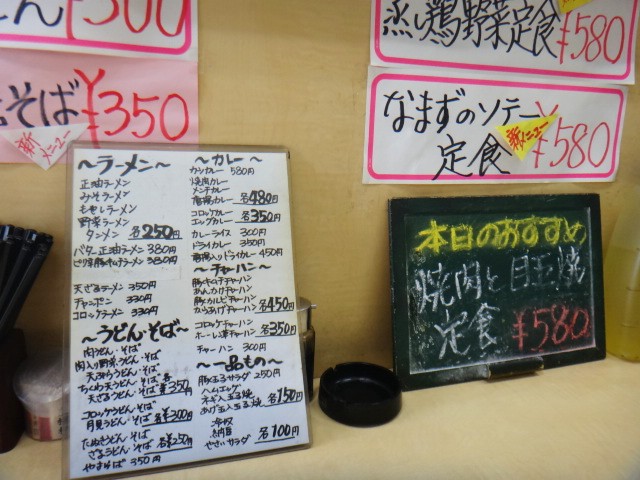 ¥500
そば¥350
新メニュー
蒸し鶏野菜定食
¥580
なまずのソテー
定食
新メニュー
¥580
～ラーメン～
正油ラーメン
みそラーメン
もやしラーメン
野菜ラーメン
タンメン 各250円
バター正油ラーメン 380円
ピリ辛豚キムチラーメン 380円
天ざるラーメン 350円
チャンポン 330円
コロッケラーメン 330円
～うどん・そば～
肉うどん・そば
肉入り野菜うどん・そば
天ぷらうどん・そば
ちくわ天うどん・そば
天ざるうどん・そば 各¥350円
コロッケうどん・そば
月見うどん・そば 各¥300円
たぬきうどん・そば
ざるうどん・そば 各¥250円
やきそば 350円
～カレー～
カツカレー 580円
焼肉カレー
メンチカレー
唐揚カレー 各480円
コロッケカレー
エッグカレー 各350円
カレーライス 300円
ドライカレー 350円
唐揚入りドライカレー 450円
～チャーハン～
豚キムチチャーハン
あんかけチャーハン
豚カルビチャーハン
からあげチャーハン 各450円
コロッケチャーハン
チャーハン 300円
～一品もの～
豚玉サラダ 250円
ハムエッグ
ネギ入玉子焼
あげ玉入玉子焼 各150円
冷奴
納豆
やさいサラダ 各100円
本日のおすすめ
焼肉と目玉焼
定食 ¥580